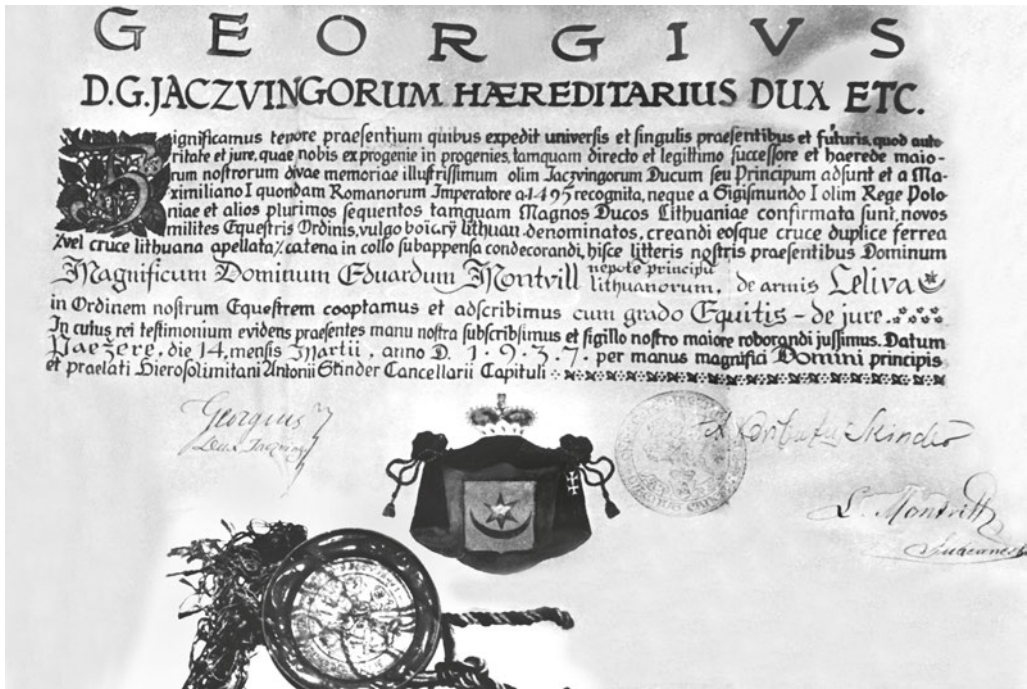 GEORGIVS
D.G. JACZVINGORUM HÆREDITARIUS DUX ETC.
Significamus tenore praesentium quibus expedit universis et singulis praesentibus et futuris, quod auto-
ritate et jure, quae nobis ex progenie in progenies, tamquam directo et legittimo successore et haerede maio-
rum nostrorum divae memoriae illustrissimum olim Jaczvingorum Ducum seu Principum adsunt et a Ma-
ximiliano I quondam Romanorum Imperatore a. 1495 recognita, neque a Sigismundo I olim Rege Polo-
niae et alios plurimos sequentos tamquam Magnos Ducos Lithuaniae confirmata sunt, novos
milites Equestris Ordinis, vulgo boicarÿ lithuan. denominatos, creandi eosque cruce duplice ferrea
/vel cruce lithuana apellata/ catena in collo subappensa condecorandi, hisce litteris nostris praesentibus Dominum
Magnificum Dominum Eduardum Montvill nepote principu lithuanorum, de armis Leliva
in Ordinem nostrum Equestrem cooptamus et adscribimus cum grado Equitis - de jure.
In cutus rei testimonium evidens praesentes manu nostra subscribsimus et sigillo nostro maiore roborandi jussimus. Datum
Paežere, die 14, mensis Martii, anno D. 1.9.3.7. per manus magnifici Domini principis
et praelati Hierosolimitani Antonii Skinder Cancellarii Capituli
Georgius
Dux
Skinder
L. Montvill